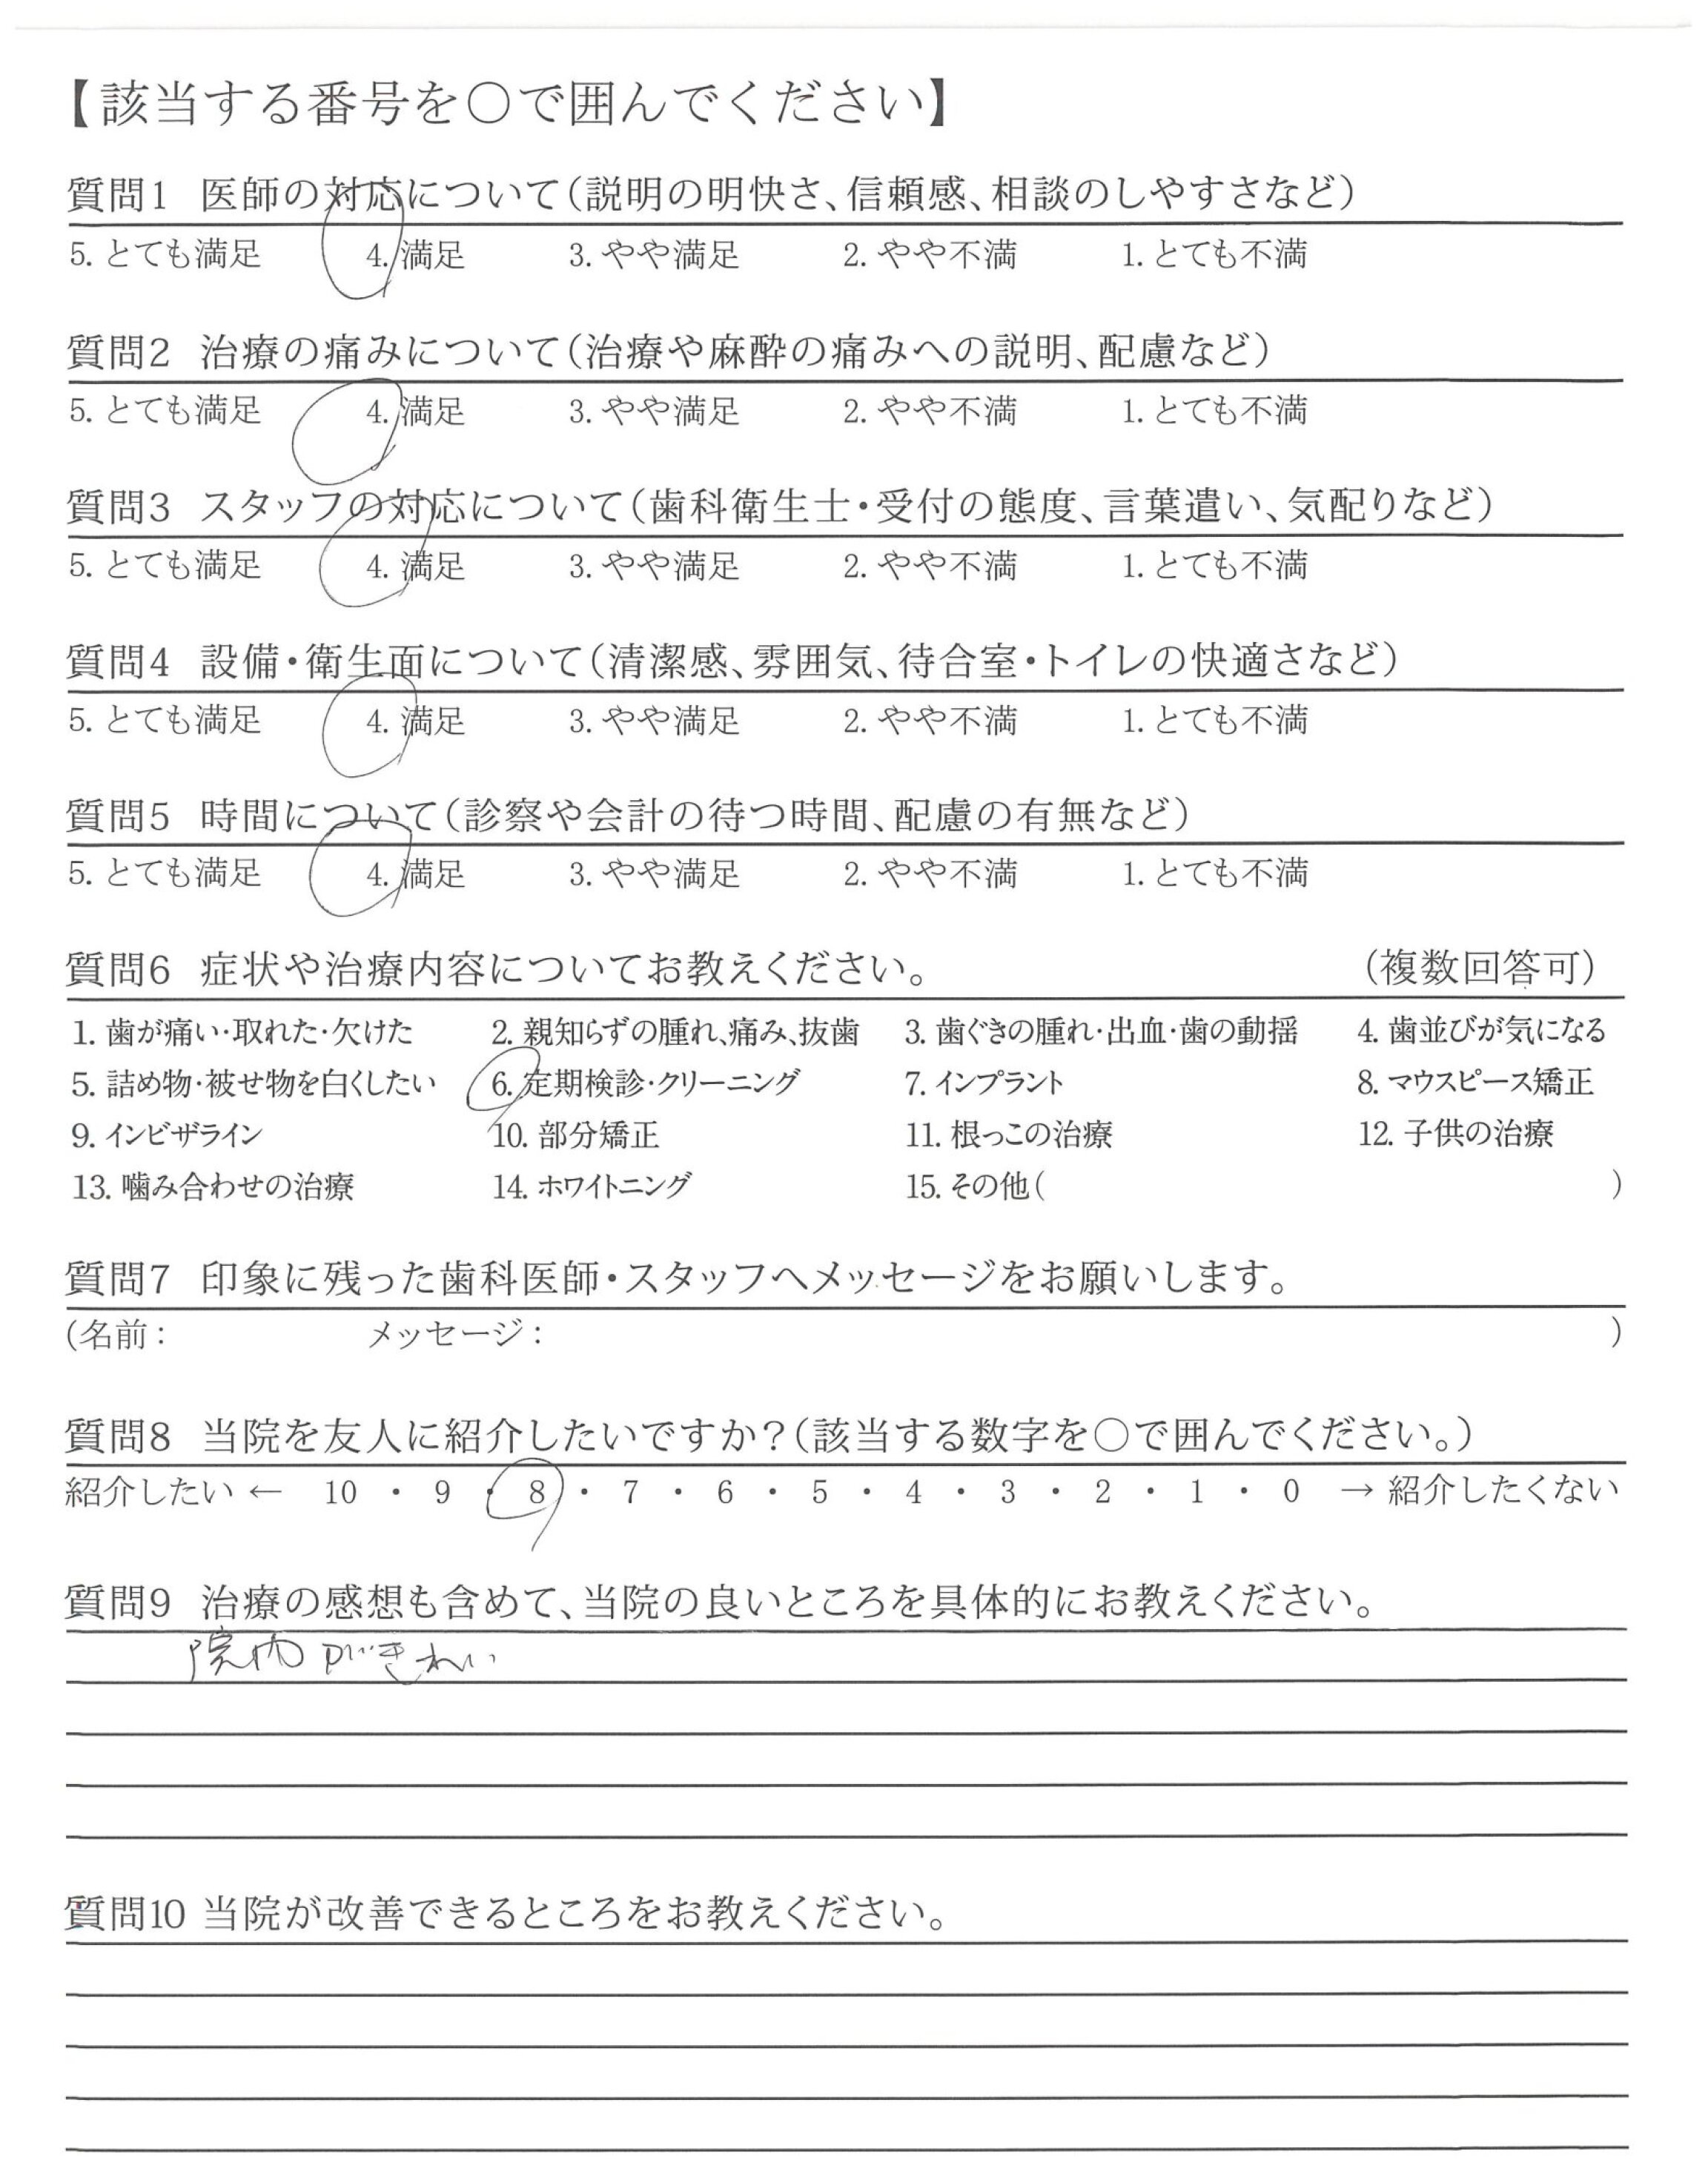 【該当する番号を〇で囲んでください】
質問1 医師の対応について(説明の明快さ、信頼感、相談のしやすさなど)
5. とても満足 4. 満足 3. やや満足 2. やや不満 1. とても不満
質問2 治療の痛みについて(治療や麻酔の痛みへの説明、配慮など)
5. とても満足 4. 満足 3. やや満足 2. やや不満 1. とても不満
質問3 スタッフの対応について(歯科衛生士・受付の態度、言葉遣い、気配りなど)
5. とても満足 4. 満足 3. やや満足 2. やや不満 1. とても不満
質問4 設備・衛生面について(清潔感、雰囲気、待合室・トイレの快適さなど)
5. とても満足 4. 満足 3. やや満足 2. やや不満 1. とても不満
質問5 時間について(診察や会計の待つ時間、配慮の有無など)
5. とても満足 4. 満足 3. やや満足 2. やや不満 1. とても不満
質問6 症状や治療内容についてお教えください。 (複数回答可)
1. 歯が痛い・取れた・欠けた 2. 親知らずの腫れ、痛み、抜歯 3. 歯ぐきの腫れ・出血・歯の動揺 4. 歯並びが気になる
5. 詰め物・被せ物を白くしたい 6. 定期検診・クリーニング 7. インプラント 8. マウスピース矯正
9. インビザライン 10. 部分矯正 11. 根っこの治療 12. 子供の治療
13. 噛み合わせの治療 14. ホワイトニング 15. その他( )
質問7 印象に残った歯科医師・スタッフへメッセージをお願いします。
(名前: メッセージ: )
質問8 当院を友人に紹介したいですか?(該当する数字を〇で囲んでください。)
紹介したい ← 10 ・ 9 ・ 8 ・ 7 ・ 6 ・ 5 ・ 4 ・ 3 ・ 2 ・ 1 ・ 0 → 紹介したくない
質問9 治療の感想も含めて、当院の良いところを具体的にお教えください。
院内がきれい
質問10 当院が改善できるところをお教えください。